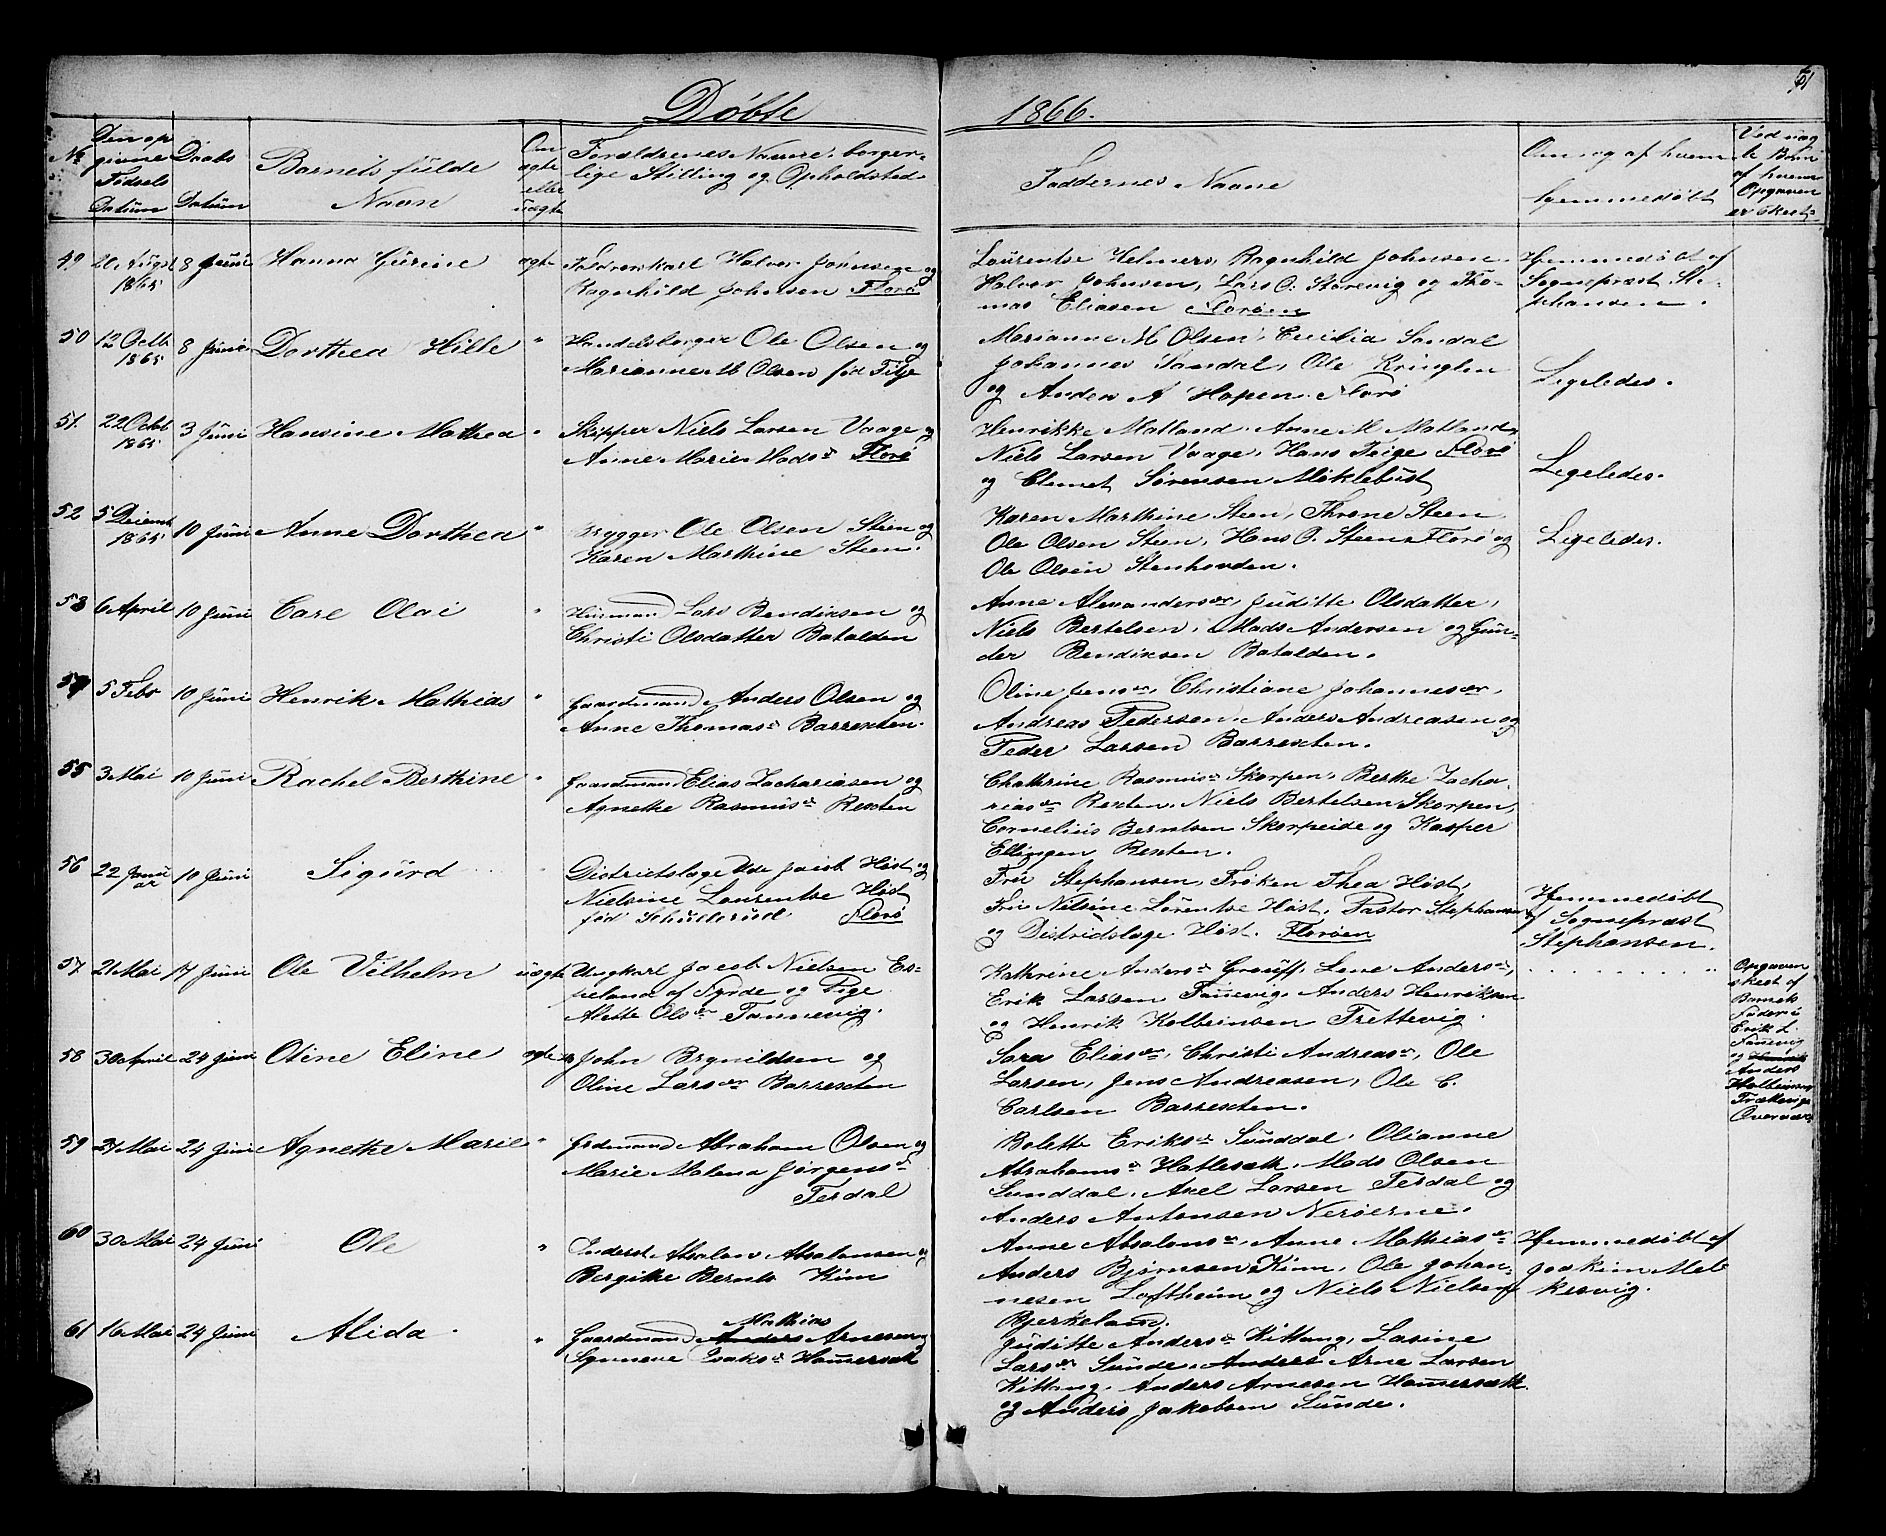 61
Døbte 1866.
No
Den opgivne Fødsels Datum
Daabs Datum
Barnets fulde Navn
Om ægte eller uægte
Forældrenes Navne, borgerlige Stilling og Opholdsted
Faddernes Navne
Om og af hvem hjemmedøbt
Ved uægte Børn af hvem Opgaven er skeet
49. 8 Juni Hanna Gurine ægte Halvor Johnsen og
1865 Ragnhild Johnsen Florø
Laurentse Helmers, Ragnhild Johnsen
Halvor Johnsen, Lars O. Storevig og Tho-
mas Eliasen Florøen
Hjemmedøbt af
Sogneprest Ste-
phansen.
50 12 Octb 1865 8 Juni Dorthea Hille " Handelsborger Ole Olsen og
Marianne M Olsen fød Titje
Marianne M Olsen, Cecilia Sandal
Johannes Sandal, Ole Kringlen
og Anders A Hopen. Florø
Ligeledes.
51. 22 Octob 1865 3 Juni Hansine Mathea " Skipper Niels Larsen Vaage og
Anne Marie Madsdr Florø
Henrikke Matland, Anne M Matland
Niels Larsen Vaage, Hans Teige Florø
og Clemet Sørensen Møklebust
Ligeledes.
52 5 Decemb 1865 10 Juni Anne Dorthea " Brygger Ole Olsen Steen og
Karen Marthine Steen.
Karen Marthine Steen, Throne Steen
Ole Olsen Steen, Hans O. Steen Florø og
Ole Olsen Stenhovden.
Ligeledes.
53 6 April 10 Juni Carl Olai " Huusmand Lars Bendiksen og
Christi Olsdatter Batalden
Anne Alexandersdr, Juditte Olsdatter,
Niels Bertelsen, Mads Andersen og Gun-
der Bendiksen Batalden.
54 5 Febr 10 Juni Henrik Mathias " Gaardmand Anders Olsen og
Anne Thomasdr Barrexten.
Oline Jensdr, Christiane Johannesdr,
Andreas Pedersen, Anders Andreasen og
Peder Larsen Barrexten.
55 3 Mai 10 Juni Rachel Berthine " Gaardmand Elias Zachariasen og
Agnethe Rasmusdr Rexten
Chathrine Rasmusdr Skorpen, Berthe Zacha-
riasdr Rexten, Niels Bertelsen Skorpen,
Cornelius Berntsen Skorpeide og Kasper
Ellingen Rexten.
56 22 Januar 10 Juni Sigurd " Districtslæge Jacob Høst og
Nielsine Laurentse Høst
fød Florø
Fru Stephansen, Frøken Thea Høst,
Fru Nilsine Lorentse Høst, Pastor Stephansen
og Districtslæge Høst. Florøen
Hjemmedøbt
af Sogneprest
Stephansen.
57 21 Mai 17 Juni Ole Vilhelm uægte Ungkarl Jacob Nielsen Es-
peland af Førde og Pige
Alette Olsdr Fannevig.
Kathrine Andersdr Grouff, Lene Andersdr,
Erik Larsen Fannevig, Anders Henriksen
og Henrik Kolbeinsen Trettevig.
Opgaven
skeet af
Barnets
Faderi
Erik L.
Fannevig
og Henrik
Anders
Kolbeinsen
Trættevig
58 30 April 24 Juni Oline Eline ægte John Brynildsen og
Oline Larsdr Barrexten
Sara Eliasdr, Christi Andreasdr, Ole
Larsen, Jens Andreasen, Ole C.
Carlsen Barrexten.
59 21 Mai 24 Juni Agnethe Marie " Grdmand Abraham Olsen og
Marie Malena Jørgensdr
Terdal
Bolette Eriksdr Sunddal, Olianne
Abrahamsdr Hatlesæth, Mads Olsen
Sunddal, Axel Larsen Terdal og
Anders Antonsen Nerøerne.
60 30 Mai 24 Juni Ole " Inderst Absalon Absalonsen og
Bergithe Bernts Kinn
Anne Absalonsdr, Anne Mathiasdr
Anders Bjørnsen Kinn, Ole Johan-
nesen Loftheim og Niels Nielsen
Bjerkeland.
Hjemmedøbt af
Joakim Mel
kevig.
61 16 Mai 24 Juni Alida. " Gaardmand Anders Mathias Arnesen og
Synneve Isaksdr Hammersæth
Juditte Andersdr Kittang, Lasine
Larsdr Sunde, Anders Arne Larsen
Kittang, Anders Arnesen Hammersæth
og Anders Jakobsen Sunde.